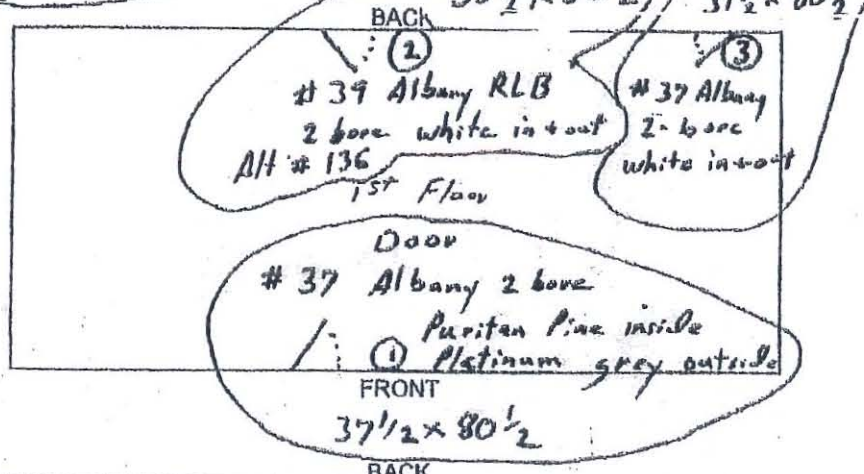 BACK
37½ x 80½
② ③
# 39 Albany RLB
2 bore white in + out
Alt # 136
# 37 Albany
2-bore
white in + out
1ST Floor
Door
# 37 Albany 2 bore
Puritan Pine inside
① Platinum grey outside
FRONT
37 1/2 x 80 ½
BACK